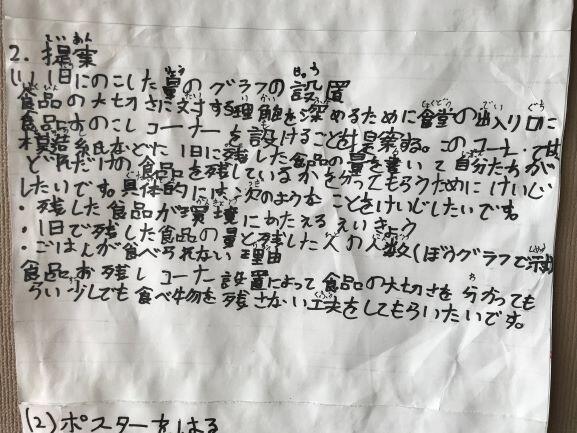 2. 提案
(1) 1日にのこした量のグラフの設置
食品の大切さに対する理解を深めるために食堂の出入り口に
食品おのこしコーナーを設けることを提案する。このコーナーでは
模造紙などに1日に残した食品の量を書いて自分たちが
どれだけの食品を残しているかを分ってもらうためにけいじ
したいです。具体的には、次のようなことをけいじしたいです。
・残した食品が環境にあたえるえいきょう
・1日で残した食品の量と残した人の人数(ぼうグラフで示す)
・ごはんが食べられない理由
食品お残しコーナー設置によって食品の大切さを分かっても
らい少しでも食べ物を残さない工夫をしてもらいたいです。
(2)ポスターをはる